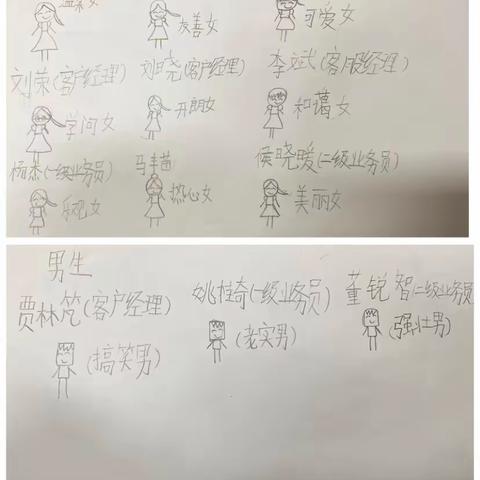 温柔女 友善女 可爱女
刘荣(客户经理) 刘晓(客户经理) 李斌(客服经理)
学问女 开朗女 和蔼女
杨杰(一级业务员) 马丰苗 侯晓暖(二级业务员)
乐观女 热心女 美丽女
男生
贾林梵(客户经理) 姚桂奇(一级业务员) 董锐智(二级业务员)
(搞笑男) (老实男) (强壮男)